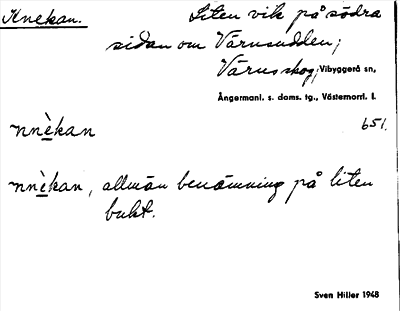 Knekan. Liten vik på södra
sidan om Värnsudden;
Värnsskog, Vibyggerå sn,
Ångermanl. s. doms. tg., Västernorrl. l.
nnè̱kan 651.
nnè̱kan, allmän benämning på liten
bukt.
Sven Hiller 1948